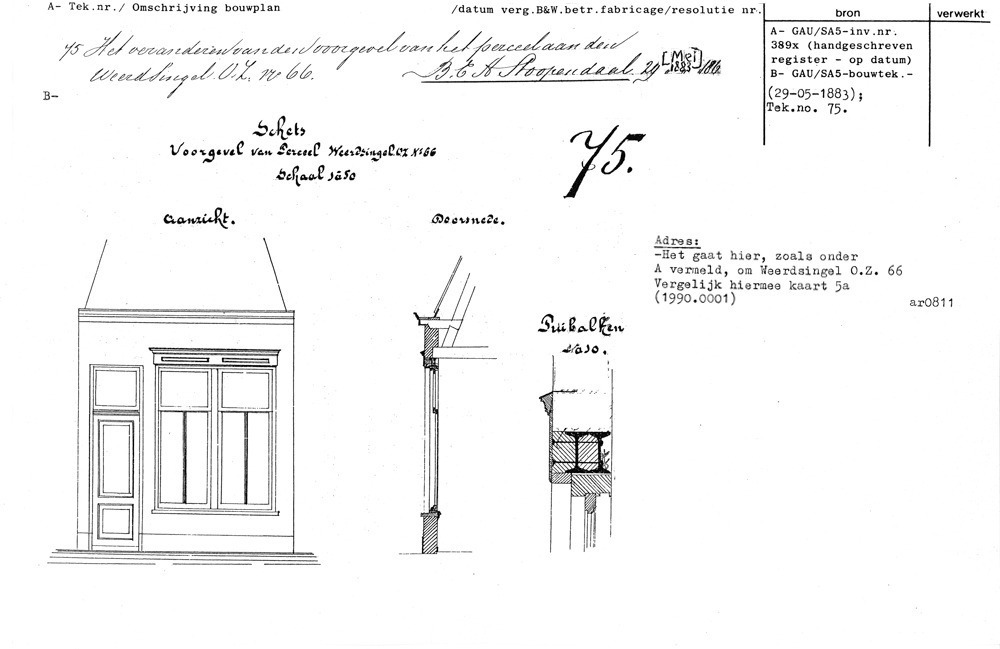 A- Tek.nr./ Omschrijving bouwplan /datum verg.B&W.betr.fabricage/resolutie nr.
bron
verwerkt
75 Het veranderen van den voorgevel van het perceel aan den
Weerdsingel O.Z. no 66. B.E.A Stoopendaal. 29 [Mei] 1883
A- GAU/SA5-inv.nr.
389x (handgeschreven
register - op datum)
B- GAU/SA5-bouwtek.-
(29-05-1883);
Tek.no. 75.
B-
Schets
Voorgevel van Perceel Weerdsingel.OZ No 66
Schaal 1à50
75.
Aanzicht.
Doorsnede.
Adres:
-Het gaat hier, zoals onder
A vermeld, om Weerdsingel O.Z. 66
Vergelijk hiermee kaart 5a
(1990.0001)
ar0811
Puibalken
1à10.